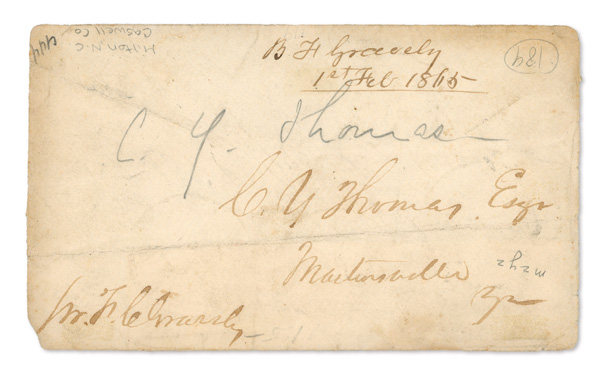 Milton, N.C
Caswell Co
B F Gravely
1st Feb 1865
184
C Y. Thomas
C. Y Thomas, Esqr
Martinsville
Va